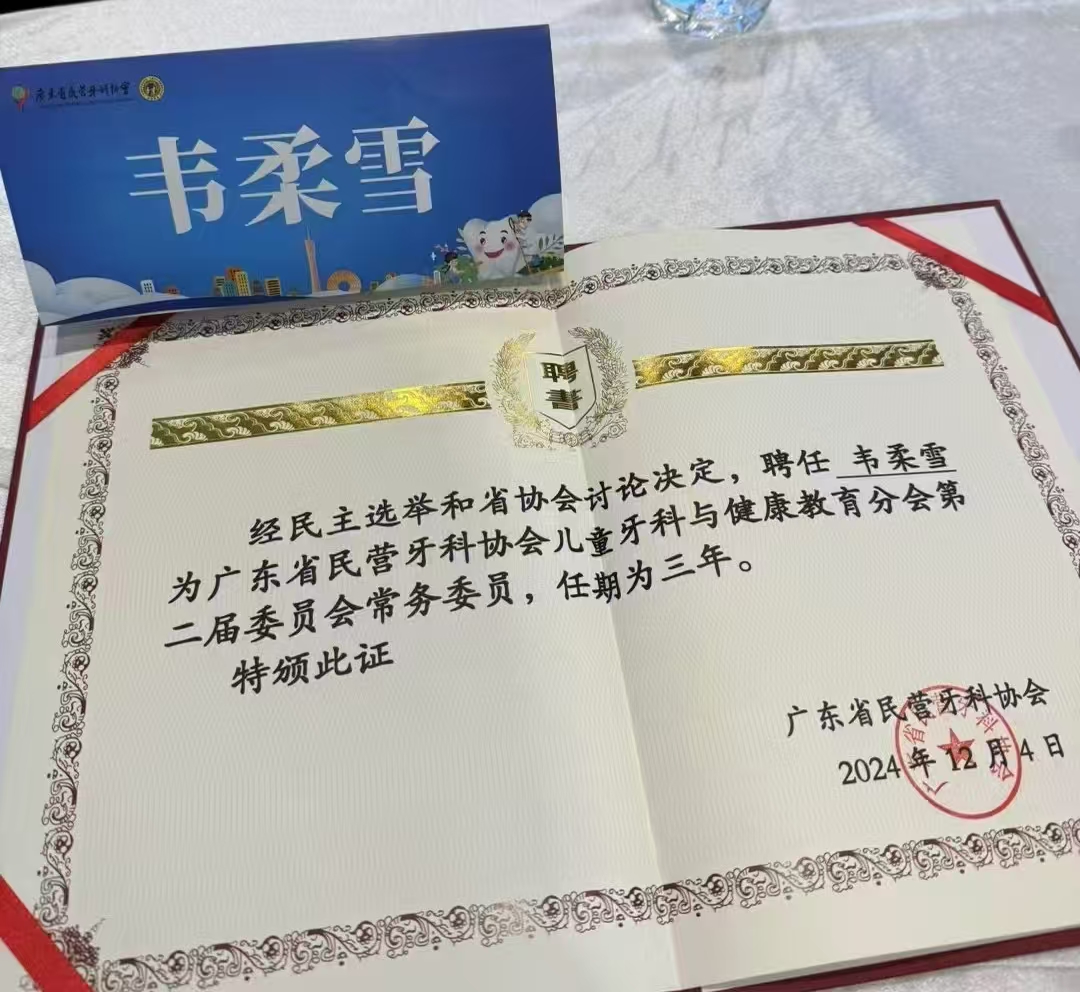 广东省民营牙科协会
韦柔雪
聘書
经民主选举和省协会讨论决定，聘任 韦柔雪
为广东省民营牙科协会儿童牙科与健康教育分会第
二届委员会常务委员，任期为三年。
特颁此证
广东省民营牙科协会
2024年12月4日